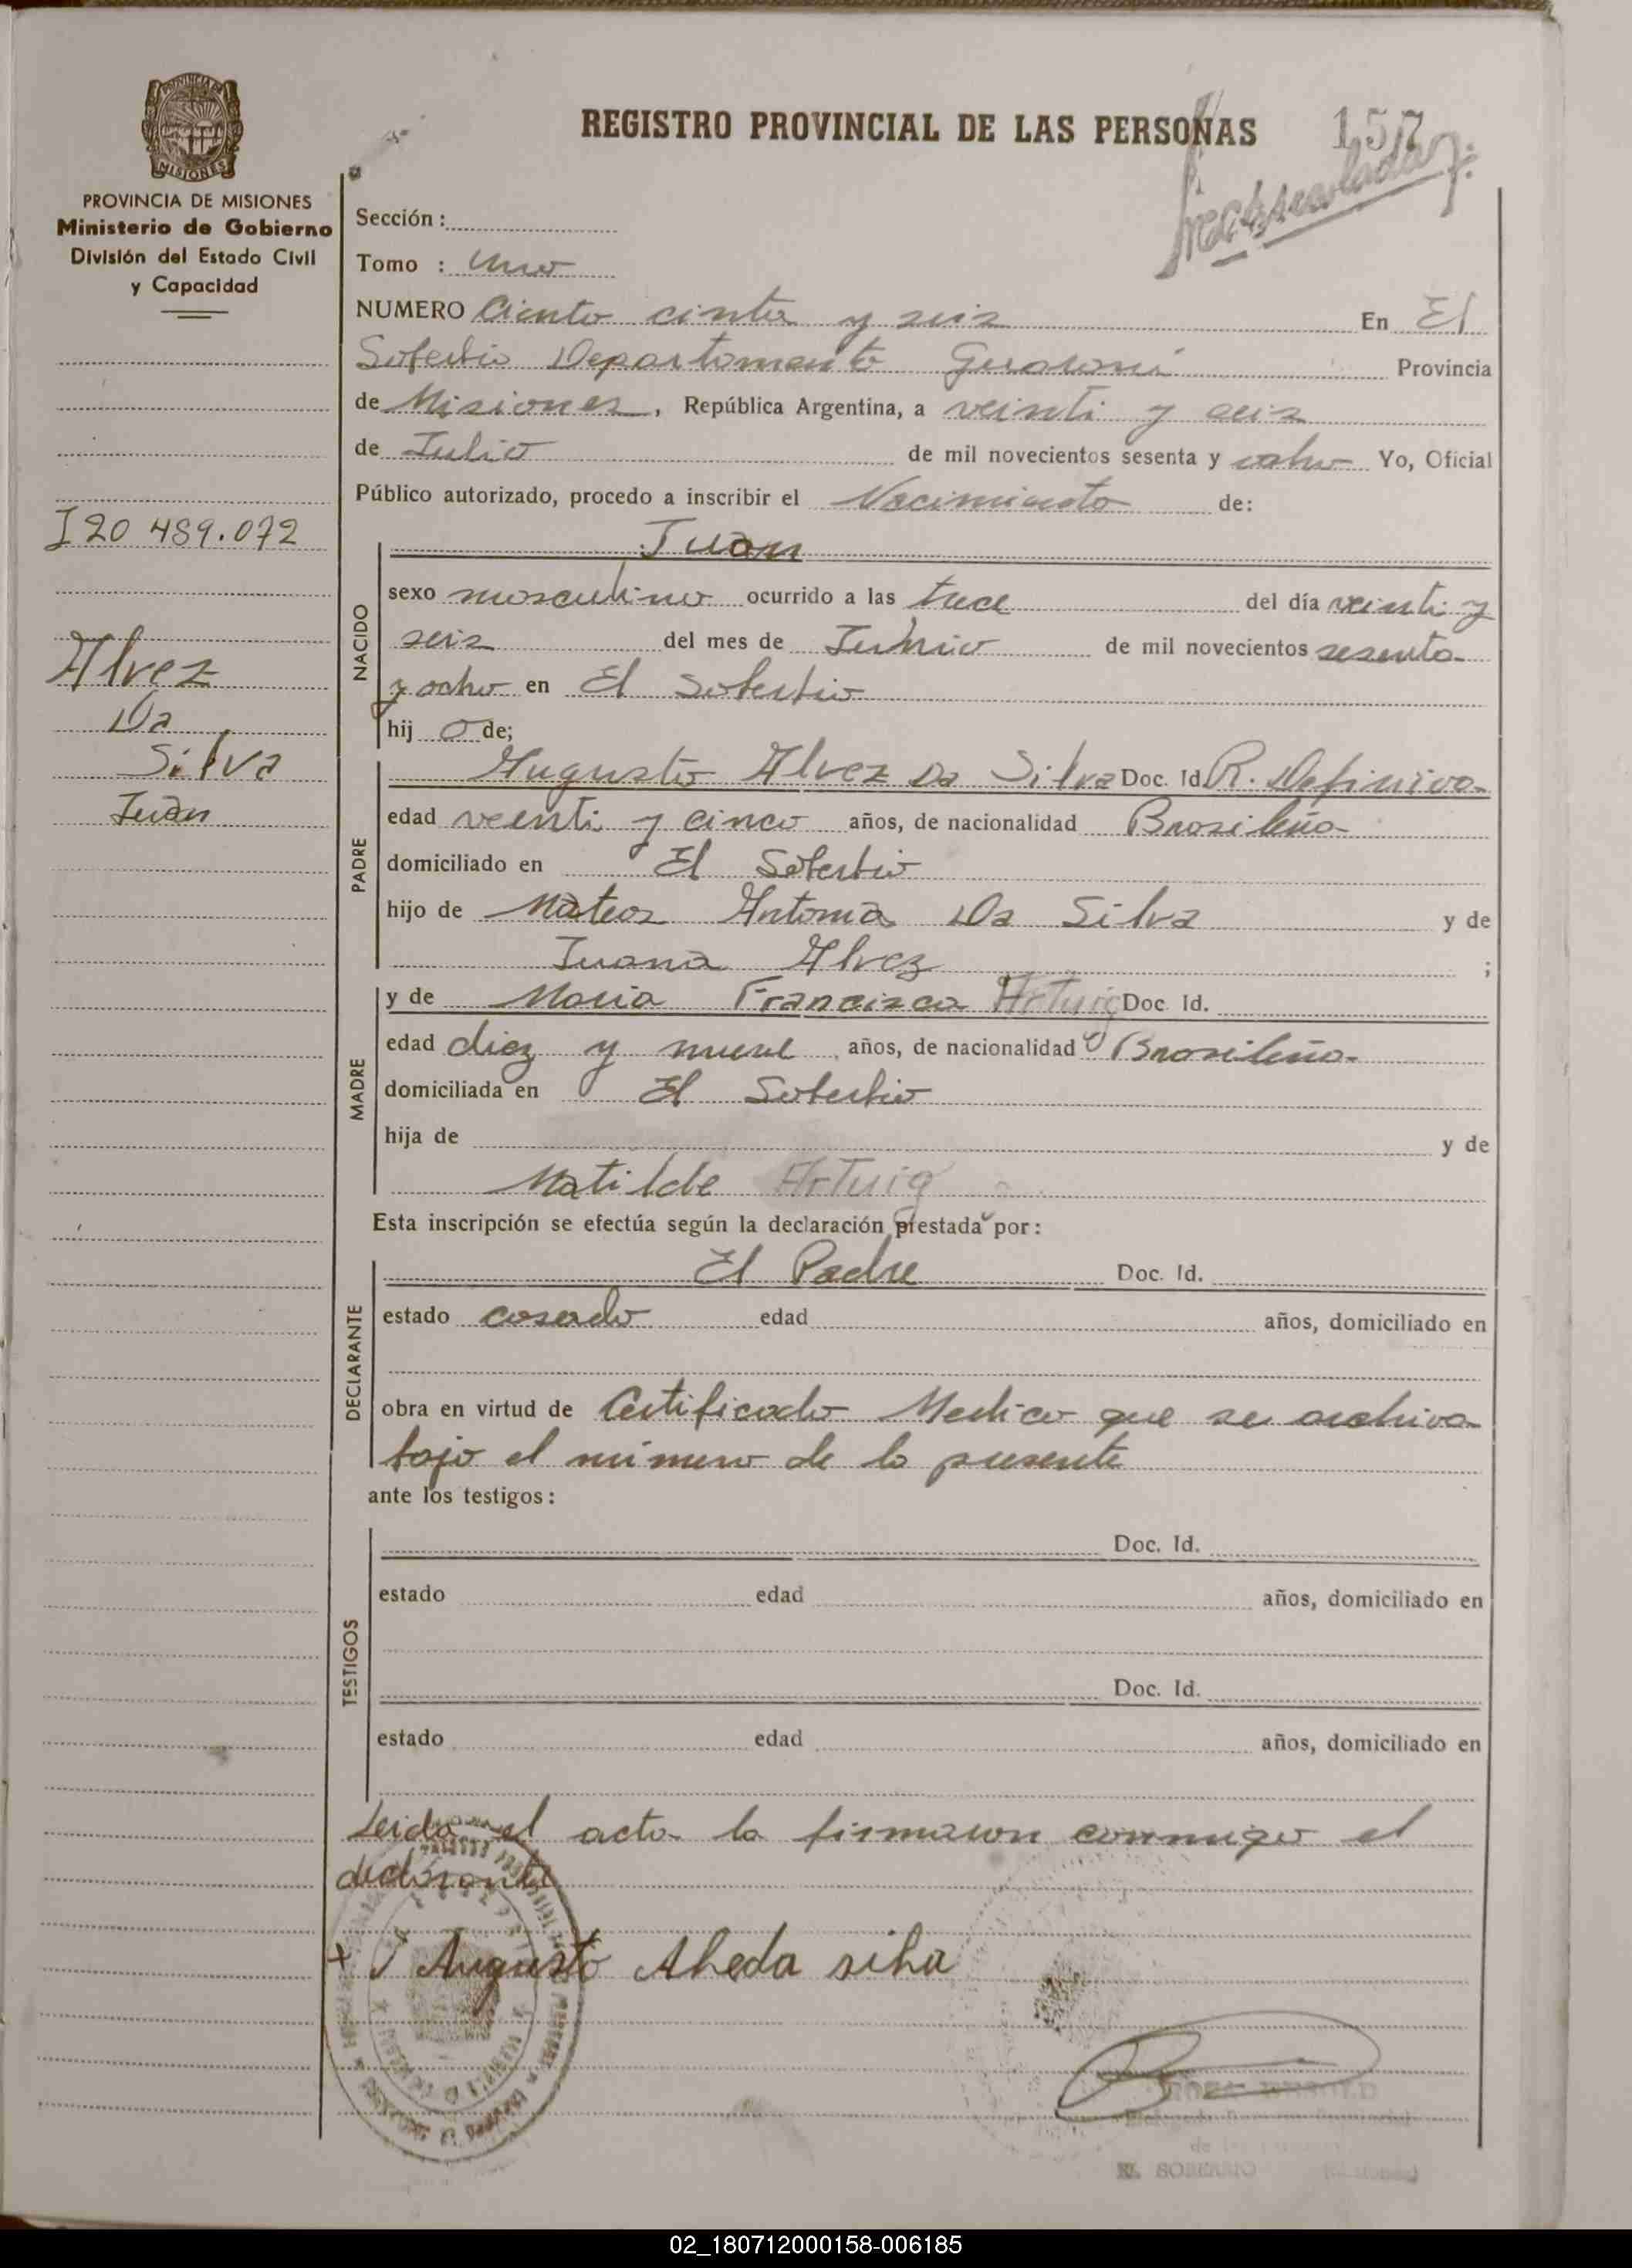 REGISTRO PROVINCIAL DE LAS PERSONAS
157
PROVINCIA DE MISIONES
Ministerio de Gobierno
División del Estado Civil
y Capacidad
I 20 489.072
Alvez
Da
Silva
Juan
Sección :
Tomo : Uno
NUMERO Ciento cinta y seis En El
Soberbio Departamento Guaraní Provincia
de Misiones, República Argentina, a veinti y seis
de Julio de mil novecientos sesenta y ocho Yo, Oficial
Público autorizado, procedo a inscribir el Nacimiento de:
Juan
NACIDO
sexo masculino ocurrido a las trece del día veinti y
seis del mes de Junio de mil novecientos sesenta
y ocho en El Soberbio
hij o de;
PADRE
Augusto Alvez Da Silva Doc. Id. R. Definiva
edad veinti y cinco años, de nacionalidad Brasileña
domiciliado en El Soberbio
hijo de Mateos Antonia Da Silva y de
Juana Alvez ;
MADRE
y de Maria Francisca Artuig Doc. Id.
edad diez y nueve años, de nacionalidad Brasileña
domiciliada en El Soberbio
hija de y de
Matilde Artuig
Esta inscripción se efectúa según la declaración prestada por :
DECLARANTE
El Padre Doc. Id.
estado casado edad años, domiciliado en
obra en virtud de Certificado Medico que se archiva
bajo el número de la presente
ante los testigos :
TESTIGOS
Doc. Id.
estado edad años, domiciliado en
Doc. Id.
estado edad años, domiciliado en
Leida el acta la firmaron conmigo el
declarante
x Augusto Aheda silva
EL SOBERBIO
02_180712000158-006185